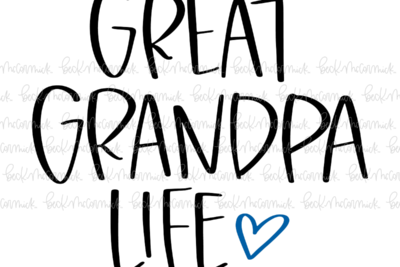 GREAT
GRANDPA
LIFE